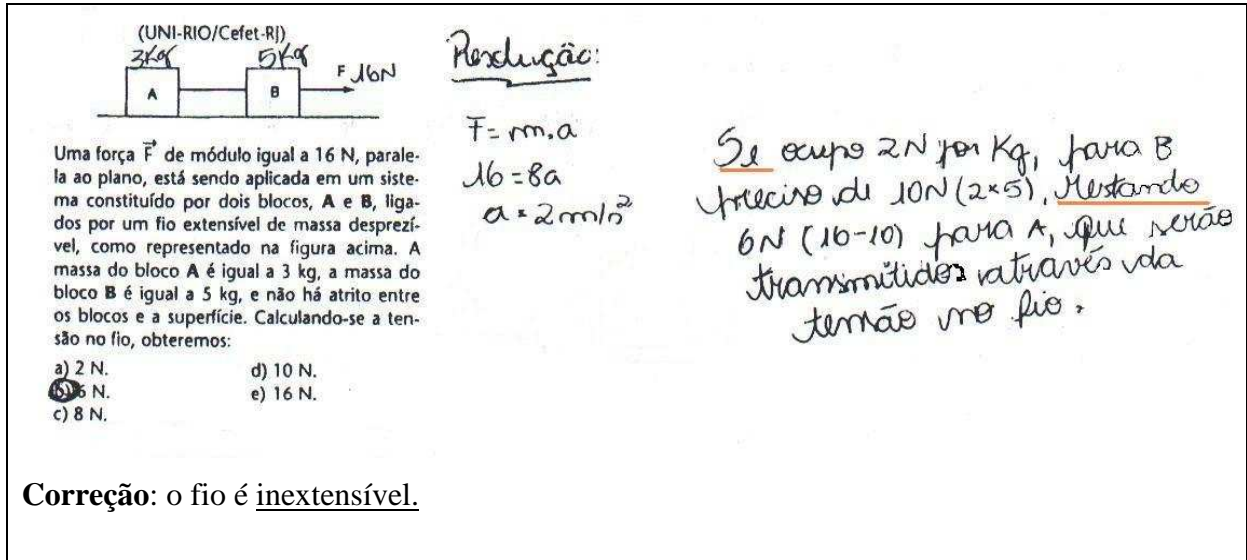 (UNI-RIO/Cefet-RJ)
3Kg 5Kg
F 16N
A B
Uma força F⃗ de módulo igual a 16 N, parale-
la ao plano, está sendo aplicada em um siste-
ma constituído por dois blocos, A e B, liga-
dos por um fio extensível de massa desprezí-
vel, como representado na figura acima. A
massa do bloco A é igual a 3 kg, a massa do
bloco B é igual a 5 kg, e não há atrito entre
os blocos e a superfície. Calculando-se a ten-
são no fio, obteremos:
a) 2 N.
b) 6 N.
c) 8 N.
d) 10 N.
e) 16 N.
Resolução:
F = m.a
16 = 8a
a = 2m/s²
Se ocupo 2N por Kg, para B
preciso de 10N (2×5), restando
6N (16-10) para A, que serão
transmitidos através da
tensão no fio.
Correção: o fio é inextensível.